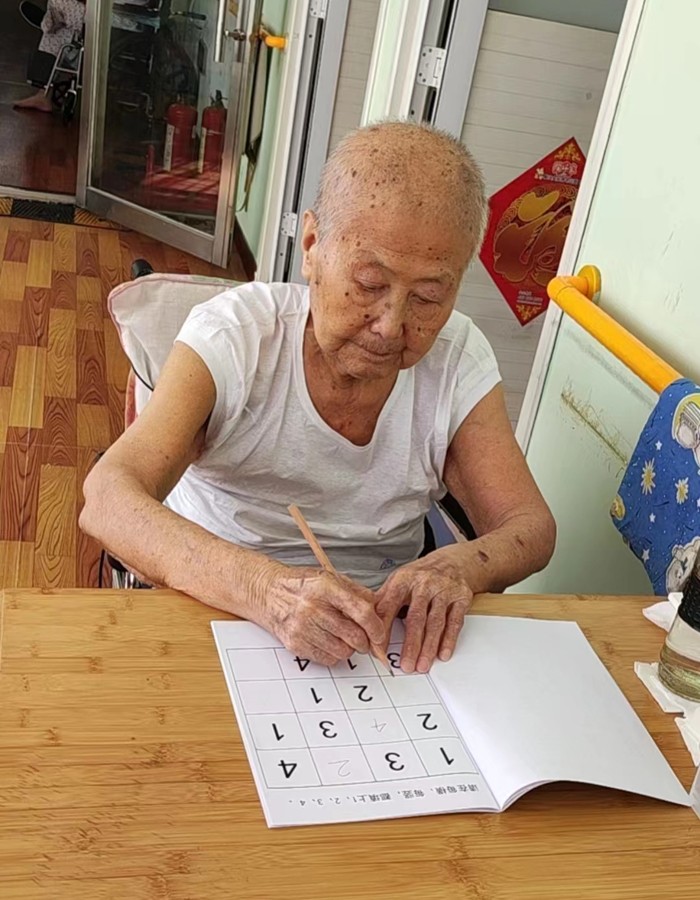 请在每横、每竖，都填上1、2、3、4。
1 3 2 4
2 4 3 1
2 1
3 1 4